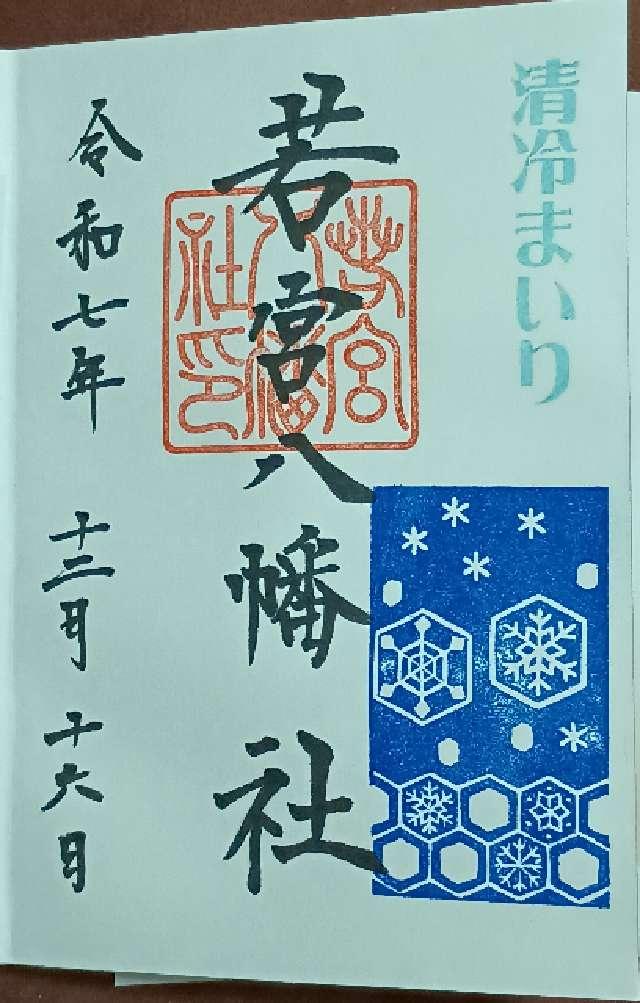 清冷まいり
若宮八幡社
若宮八幡社印
令和七年 十二月 十六日